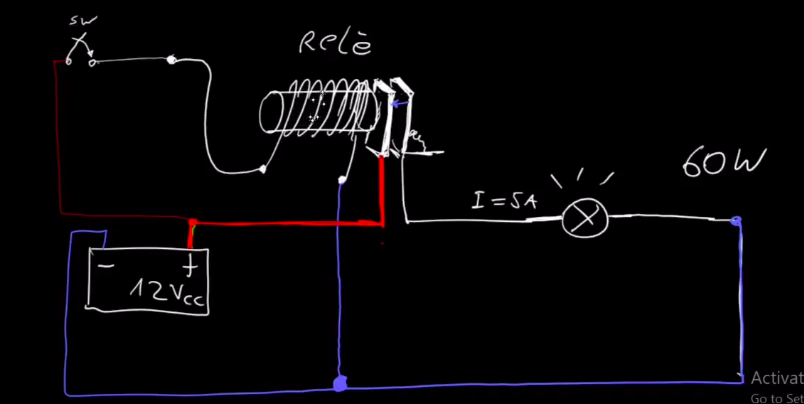 SW
Relè
60W
I = 5A
- +
12Vcc
Activat
Go to Set